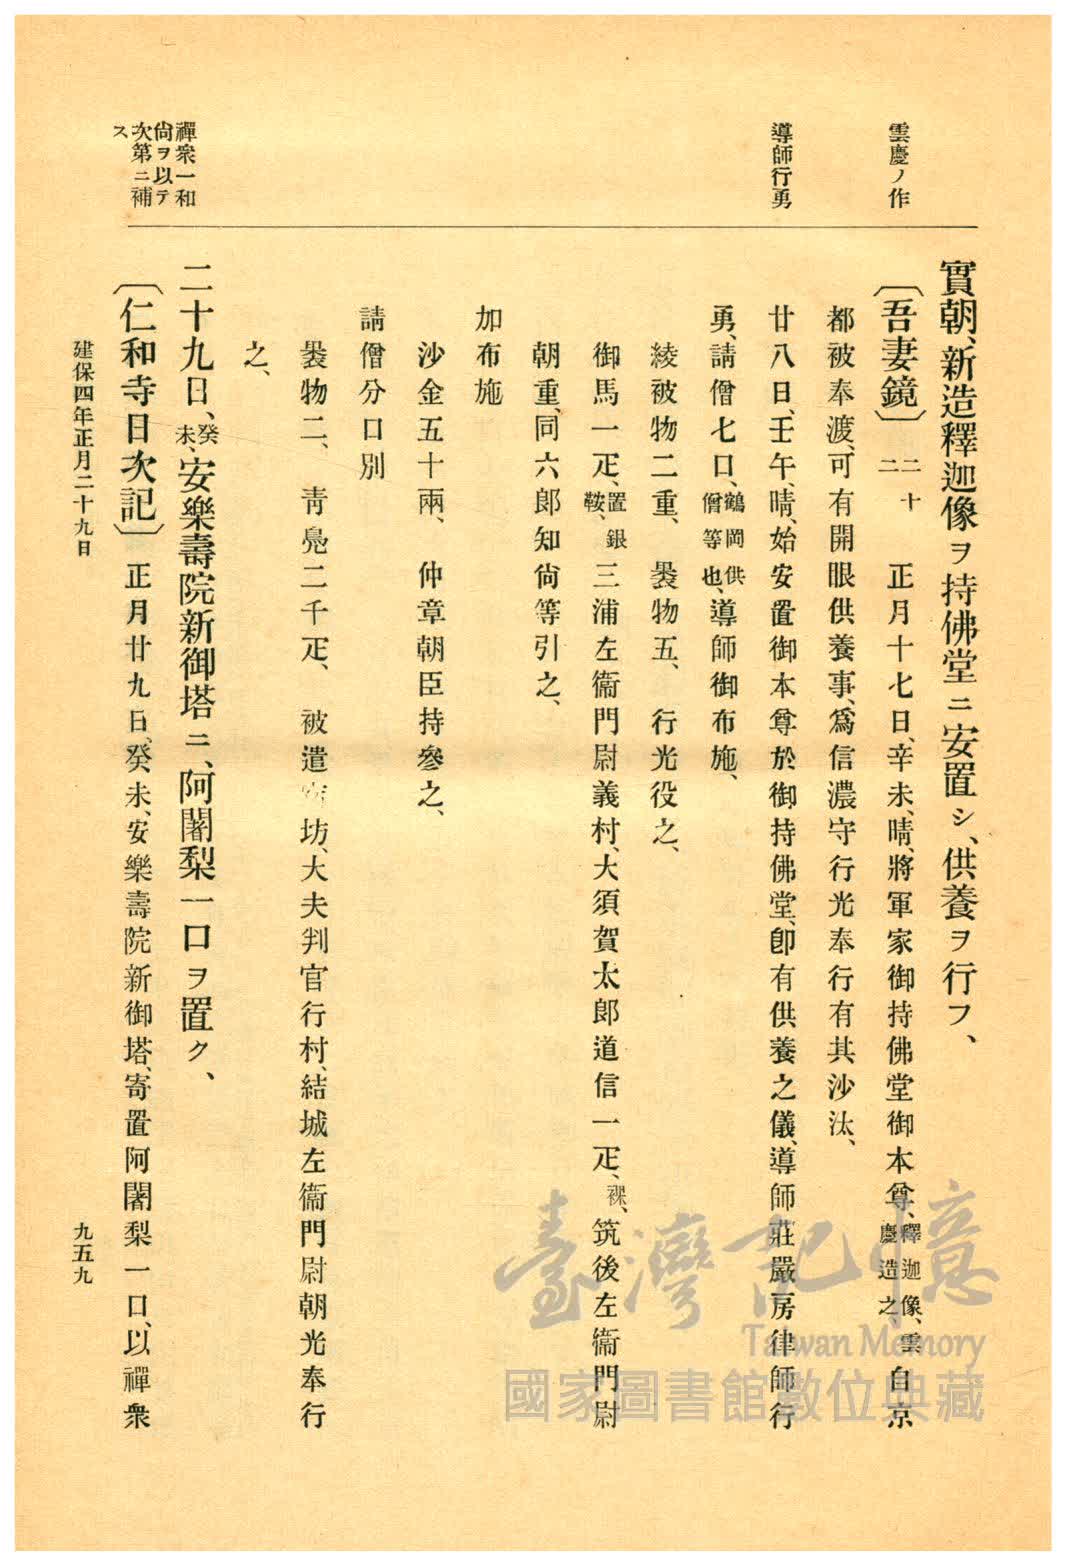 雲慶ノ作
導師行勇
禪衆一和
尙ヲ以テ
次第ニ補
ス
實朝、新造釋迦像ヲ持佛堂ニ安置シ、供養ヲ行フ、
〔吾妻鏡〕二十二 正月十七日、辛未、晴、將軍家御持佛堂御本尊、釋迦像、雲慶造之、自京
都被奉渡、可有開眼供養事、爲信濃守行光奉行有其沙汰、
廿八日、壬午、晴、始安置御本尊於御持佛堂、卽有供養之儀、導師莊嚴房律師行
勇、請僧七口、鶴岡供僧等也、導師御布施、
綾被物二重、 褁物五、 行光役之、
御馬一疋、置銀鞍、三浦左衞門尉義村、大須賀太郎道信一疋、裸、筑後左衞門尉
朝重、同六郎知尙等引之、
加布施
沙金五十兩、 仲章朝臣持參之、
請僧分口別
褁物二、 靑鳧二千疋、 被遣 坊、大夫判官行村、結城左衞門尉朝光奉行
之、
二十九日、癸未、安樂壽院新御塔ニ、阿闍梨一口ヲ置ク、
〔仁和寺日次記〕 正月廿九日、癸未、安樂壽院新御塔、寄置阿闍梨一口、以禪衆
建保四年正月二十九日
九五九
臺灣記憶
Taiwan Memory
國家圖書館數位典藏